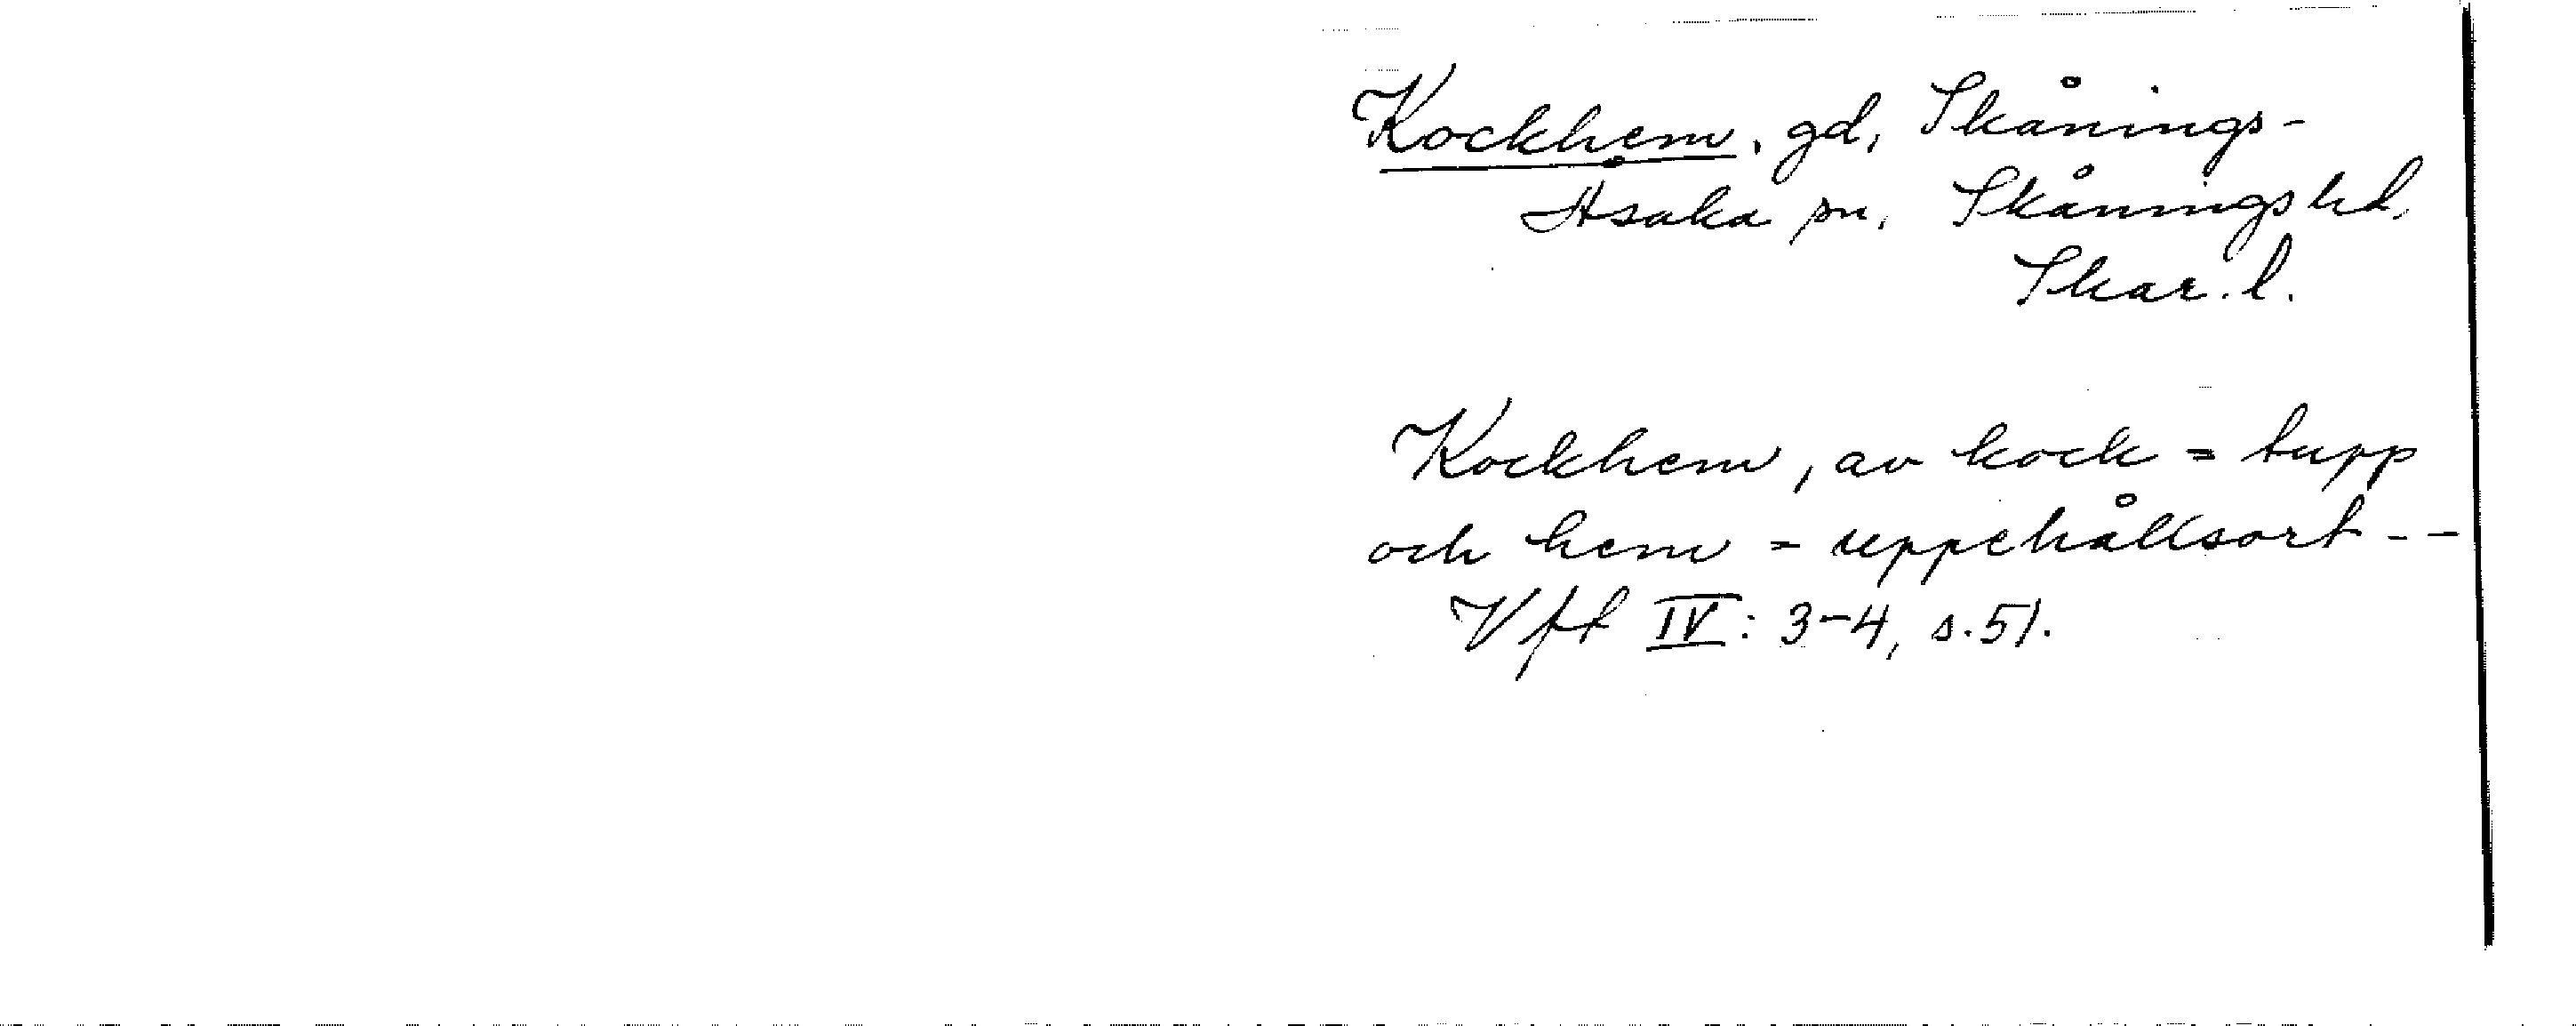 Kockhem, gd, Skånings-
Åsaka sn, Skånings hd,
Skar. l.
Kockhem, av kock = tupp
och hem = uppehållsort - -
Vft IV: 3-4, s. 51.